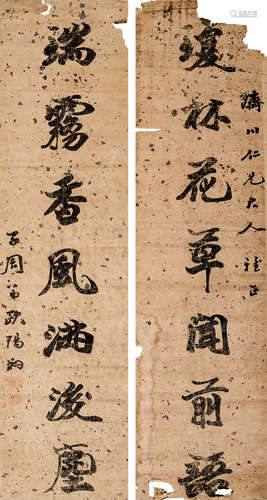 瓊林花草聞前語
濟川仁兄大人雅正
瑞霧香風滿後塵
子周弟歐陽炳